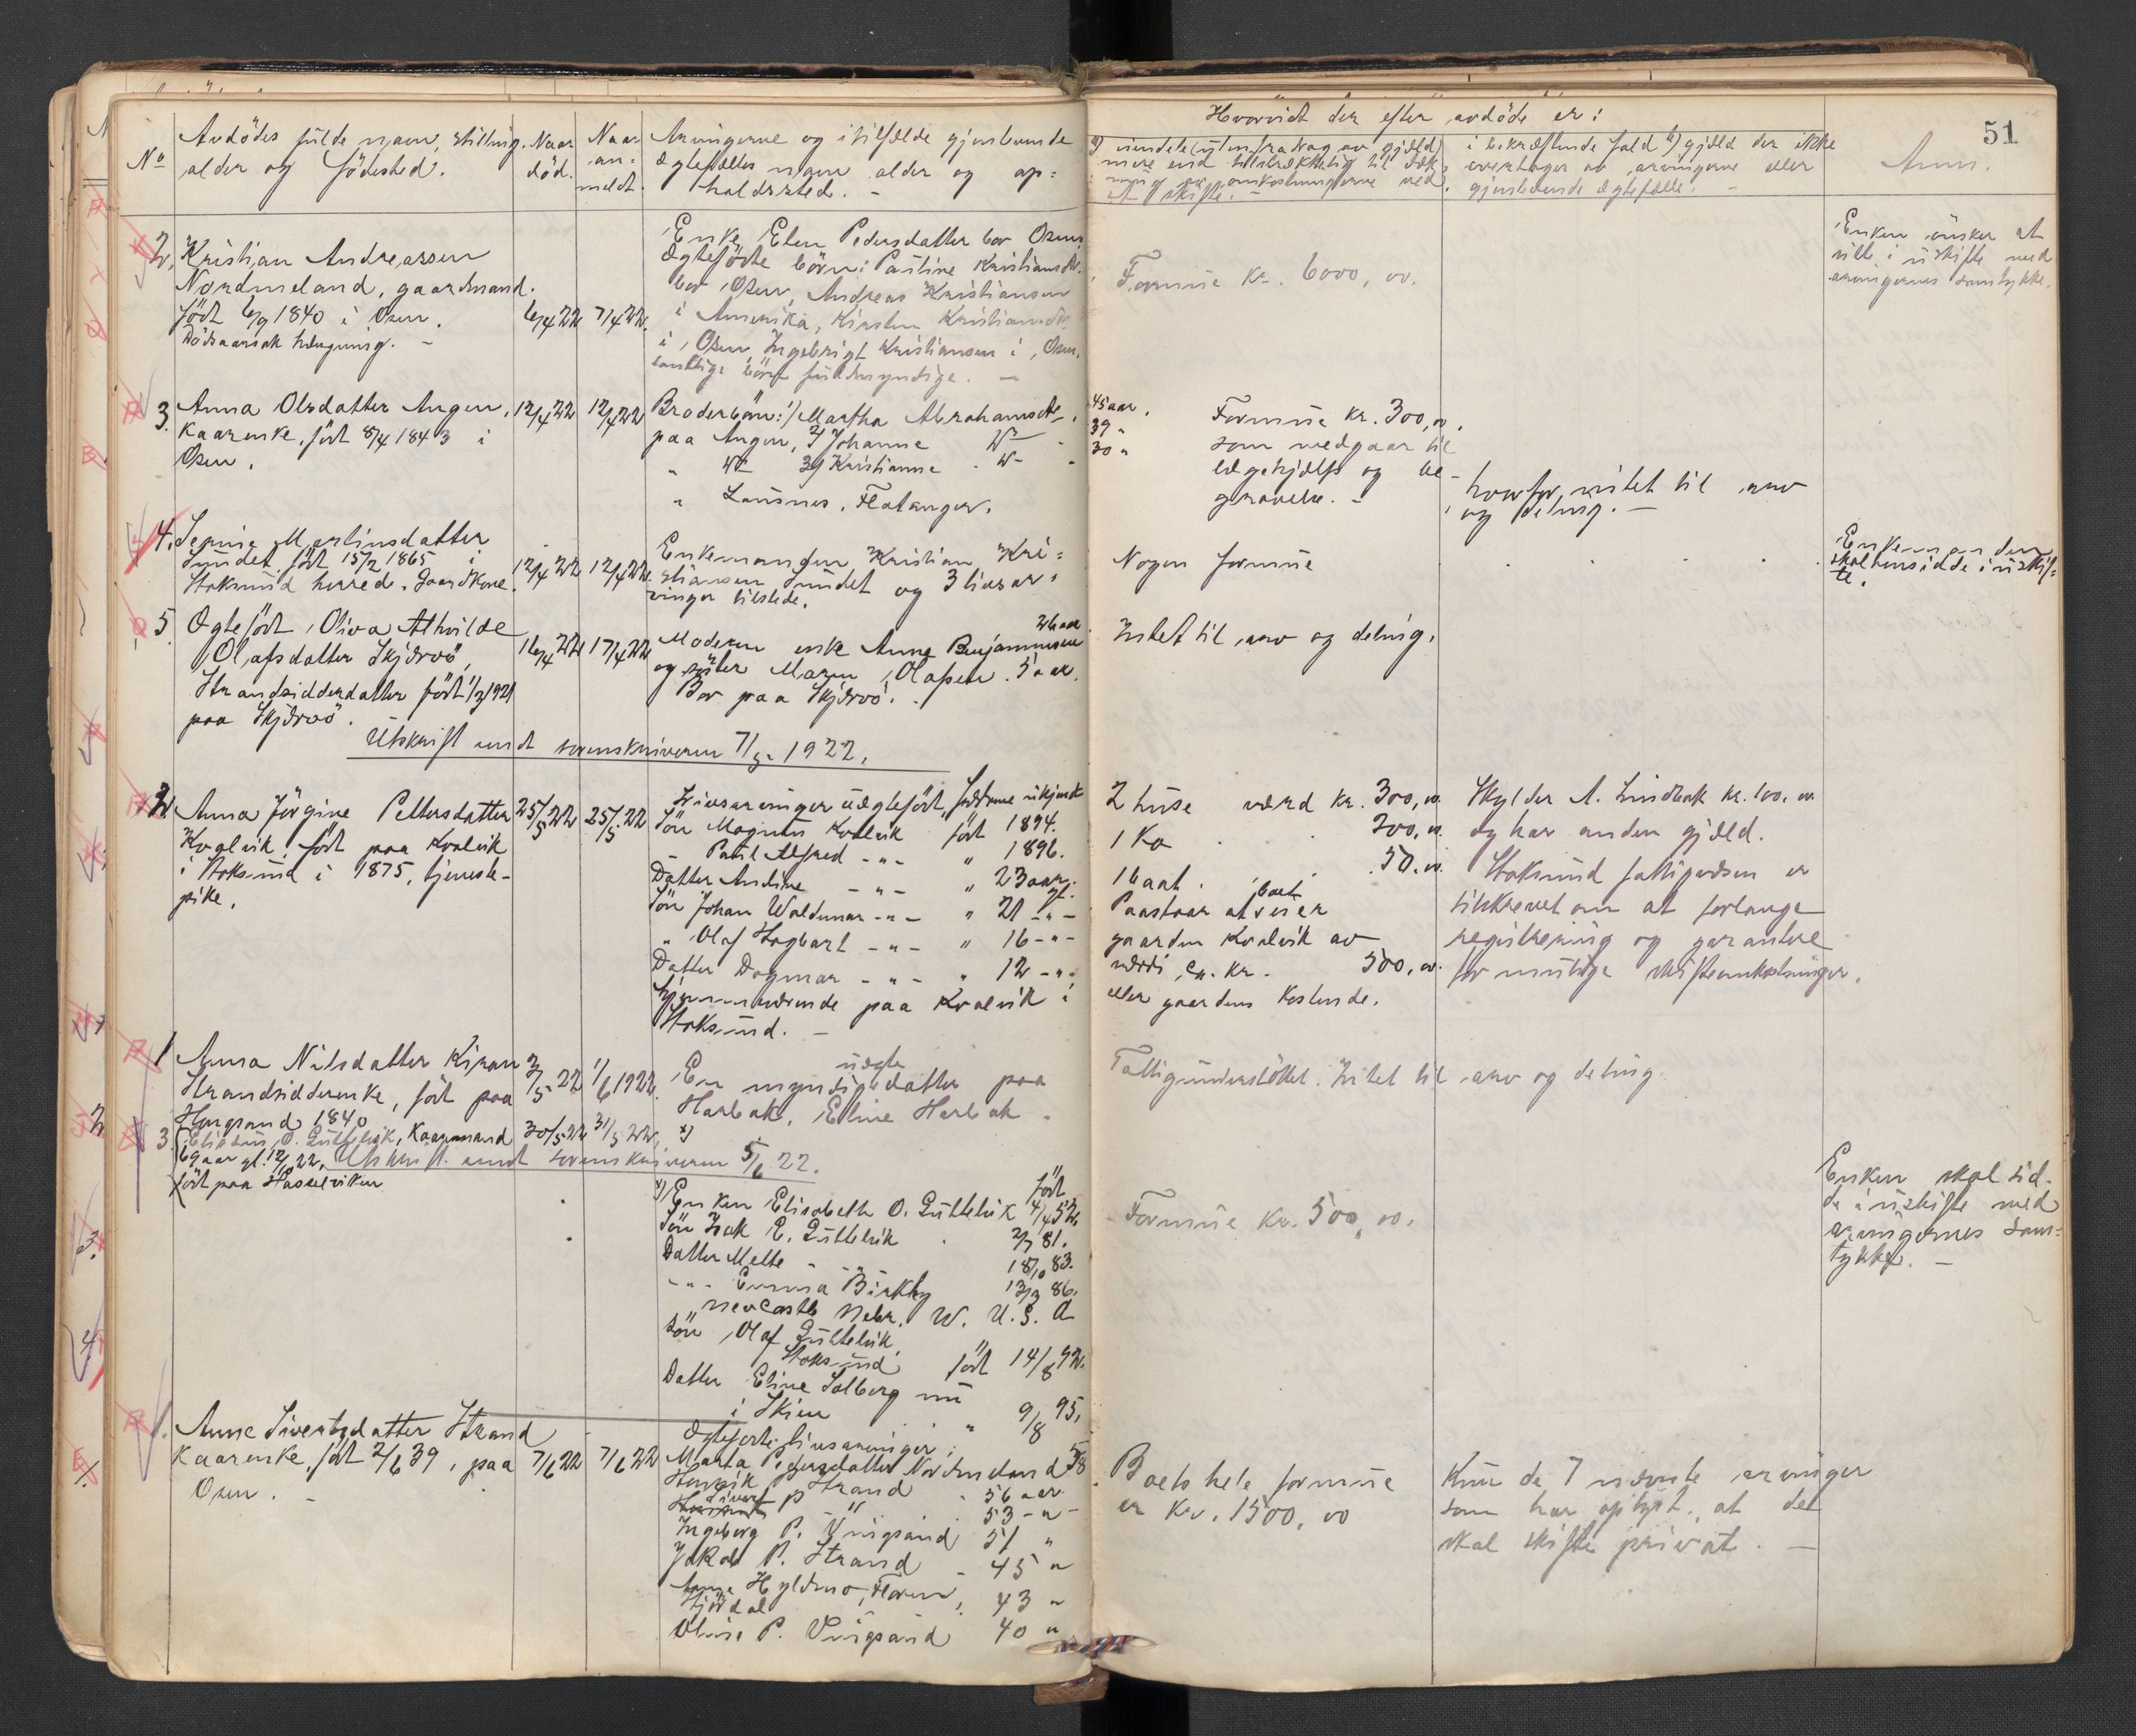 51
Hvorvidt der efter avdöde er:
No
Avdödes fulde navn, stilling,
alder og födested.
Naar
död.
Naar
an-
meldt.
Arvingerne og i tilfælde gjenlevende
ægtefælles navn alder og op-
holdssted. -
mere end tilstrækkelig til dæk-
ning av omkostningerne ved
skifte. -
i bekræftende fald b) gjæld der ikke
overtages av arvingerne eller
gjenlevende ægtefælle. -
Anm.
2, Kristian Andreassen
Nordmeland, gaardmand.
Födt 6/9 1840 i Osen.
Dödsaarsak hængning. -
6/4 22
7/4 22.
Enke Elen Pedersdatter bor Osen.
Ægtefödte börn: Pauline Kristiansdtr.
bor Osen, Andreas Kristiansen
i Amerika, Kirsten Kristiansdtr.
i Osen, Ingebrigt Kristiansen i Osen,
samtlige börn fuldmyndige. -
Formue kr. 6000,00.
Enken önsker at
sitte i uskifte med
arvingernes samtykke.
3. Anna Olsdatter Angen,
Kaarenke, födt 8/4 1843 i
Osen.
12/4 22
12/4 22
Broderbörn: 1) Martha Abrahamsdtr.
paa Angen, 2) Johanne
3) Kristianne
" Lausnes, Flatanger.
45 aar.
39 "
30 "
Formue kr. 300,00.
som medgaar til
lægehjælp og be-
gravelse. -
hvorfor, intet til arv
og deling. -
4. Martinsdatter
Sundet, födt 15/2 1865 i
Stoksund herred. Gaardkone.
12/4 22
12/4 22.
Enkemanden Kristian Kri-
stiansen Sundet og 3 livsar-
vinger tilstede.
Nogen formue
Enkemanden
skal hensidde i uskif-
te.
5. Ægtefödt Oliva Alhvilde
Olafsdatter Skjærvö,
Strandsidderdatter födt 1/3 1921
paa Skjærvö.
16/4 22
17/4 22
26 aar
Moderen enke Anna Benjaminsen
og söster Maren Olafsen. 5 aar.
Bor paa Skjærvö.
Intet til arv og deling.
Utskrift sendt sorenskriveren 7/5- 1922.
2 Anna Jörgine Pettersdatter
Kvalvik, födt paa Kvalvik
i Stoksund i 1875, tjeneste-
pike.
25/5 22
25/5 22
Livsarvinger uægtefödt,
Sön Magnus Kvalvik födt 1894.
- Paul Alfred - " - " 1896.
Datter Andine - " - " 23 aar.
Sön Johan Waldemar - " - " 21 - " -
" Olaf Hagbart - " - " 16 - " -
Datter Dagmar - " - " 12 - " -
Hjemmeværende paa Kvalvik i
Stoksund. -
2 huse værd kr. 300,00.
1 ko 200,00.
1 baat. 50,00.
Paastaar at boet eier
gaarden Kvalvik av
værdi ca. kr. 500,00.
eller gaardens Kostende.
Skylder A. Lindbak kr. 100,00
og har anden gjæld.
Stoksund fattigvæsen er
tilskrevet om at forlange
registrering og garantere
for mulige skifteomkostninger.
1 Anna Nilsdatter Kiran
Strandsidderenke, födt paa
Harsand 1840
3/5 22
1/6 1922.
uægte
En myndig datter paa
Harbak, Eline Harbak.
Fattigunderstöttet. Intet til arv og deling.
3. Elias O. Luttelvik, Kaarmand
69 aar gl. 12/1 22,
födt paa Hasselviken
30/5 22
31/5 22, x)
Utskrift sendt sorenskriveren 5/6 22.
x) Enken Elisabeth O. Luttelvik födt 4/4 52.
Sön Isak E. Luttelvik 2/7 81.
Datter Mette - " - 18/10 83.
- " - Emma Birkby 13/3 86.
Newcastle Nebr. W. U.S.A
Sön Olaf Luttelvik,
Stoksund födt 14/8 92.
Datter Eline Solberg nu
i Skien " 9/8 95.
Formue kr. 500,00.
Enken skal sid-
de i uskifte med
arvingernes sam-
tykke. -
1. Anne Sivertsdatter Strand
Kaarenke, födt 2/6 39, paa
Osen. -
7/6 22
7/6 22
Ægtefödte livsarvinger:
Marta Pedersdatter Nordmeland 58
Henrik P. Strand - 56 aar.
Sivert P. - " - 53 - " -
Ingeborg P. Vingsand 51 "
Jakob P. Strand - 45 "
Anna Hyldmo, Floren,
Stjördal 43 "
Oline P. Vingsand 40 "
Boets hele formue
er kr. 1500,00
Kun de 7 nævnte arvinger
som har oplyst, at det
skal skiftes privat. -